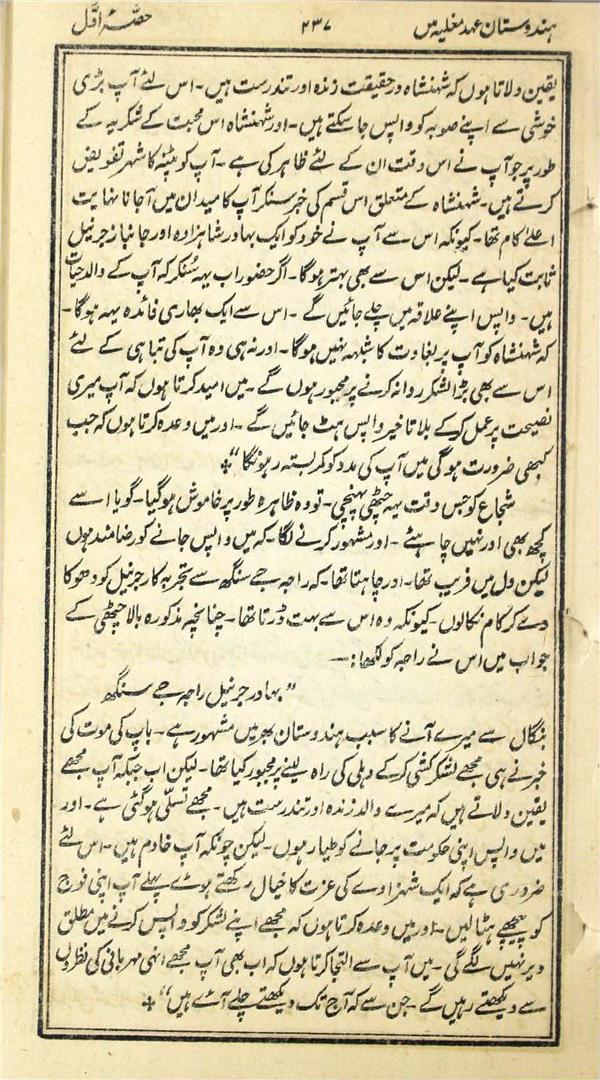 ہندوستان عہد مغلیہ میں ۲۳۷ حصہٴ اوّل
یقین دلاتا ہوں کہ شہنشاہ درحقیقت زندہ اور تندرست ہیں۔ اس لئے آپ بڑی
خوشی سے اپنے صوبہ کو واپس جا سکتے ہیں۔ اور شہنشاہ اس محبت کے شکریہ کے
طور پر جو آپ نے اس وقت ان کے لئے ظاہر کی ہے۔ آپ کو پٹنہ کا شہر تفویض
کرتے ہیں۔ شہنشاہ کے متعلق اس قسم کی خبر سنکر آپ کا میدان میں آجانا نہایت
اعلےٰ کام تھا۔ کیونکہ اس سے آپ نے خود کو ایک بہادر شاہزادہ اور جانباز جرنیل
ثابت کیا ہے۔ لیکن اس سے بھی بہتر ہوگا۔ اگر حضور اب یہہ سُنکر کہ آپ کے والد حیات
ہیں۔ واپس اپنے علاقہ میں چلے جائیں گے۔ اس سے ایک بھاری فائدہ یہہ ہوگا۔
کہ شہنشاہ کو آپ پر بغاوت کا شبہہ نہیں ہوگا۔ اور نہ ہی وہ آپ کی تباہی کے لئے
اس سے بھی بڑا لشکر روانہ کرنے پر مجبور ہوں گے۔ میں امید کرتا ہوں کہ آپ میری
نصیحت پر عمل کرکے بلا تاخیر واپس ہٹ جائیں گے۔ اور میں وعدہ کرتا ہوں کہ جب
کبھی ضرورت ہوگی میں آپ کی مدد کو کمر بستہ رہونگا“ ❖
شجاع کو جس وقت یہہ چٹھی پہنچی۔ تو وہ ظاہرہ طور پر خاموش ہوگیا۔ گویا اسے
کچھ بھی اور نہیں چاہیئے۔ اور مشہور کرنے لگا۔ کہ میں واپس جانے کو رضامند ہوں
لیکن دل میں فریب تھا۔ اور چاہتا تھا۔ کہ راجہ جے سنگھ سے تجربہ کار جرنیل کو دھوکا
دے کر کام نکالوں۔ کیونکہ وہ اس سے بہت ڈرتا تھا۔ چنانچہ مذکورہ بالا چٹھی کے
جواب میں اس نے راجہ کو لکھا:۔
”بہادر جرنیل راجہ جے سنگھ
بنگال سے میرے آنے کا سبب ہندوستان بھر میں مشہور ہے۔ باپ کی موت کی
خبر نے ہی مجھے لشکر کشی کرکے دہلی کی راہ لینے پر مجبور کیا تھا۔ لیکن اب جبکہ آپ مجھے
یقین دلاتے ہیں کہ میرے والد زندہ اور تندرست ہیں۔ مجھے تسلّی ہوگئی ہے۔ اور
میں واپس اپنی حکومت پر جانے کو طیار ہوں۔ لیکن چونکہ آپ خادم ہیں۔ اس لئے
ضروری ہے کہ ایک شہزادے کی عزت کا خیال رکھتے ہوئے پہلے آپ اپنی فوج
کو پیچھے ہٹالیں۔ اور میں وعدہ کرتا ہوں کہ مجھے اپنے لشکر کو واپس کرنے میں مطلق
دیر نہیں لگے گی۔ میں آپ سے التجا کرتا ہوں کہ اب بھی آپ مجھے انہی مہربانی کی نظروں
سے دیکھتے رہیں گے۔ جن سے کہ آج تک دیکھتے چلے آئے ہیں“ ❖